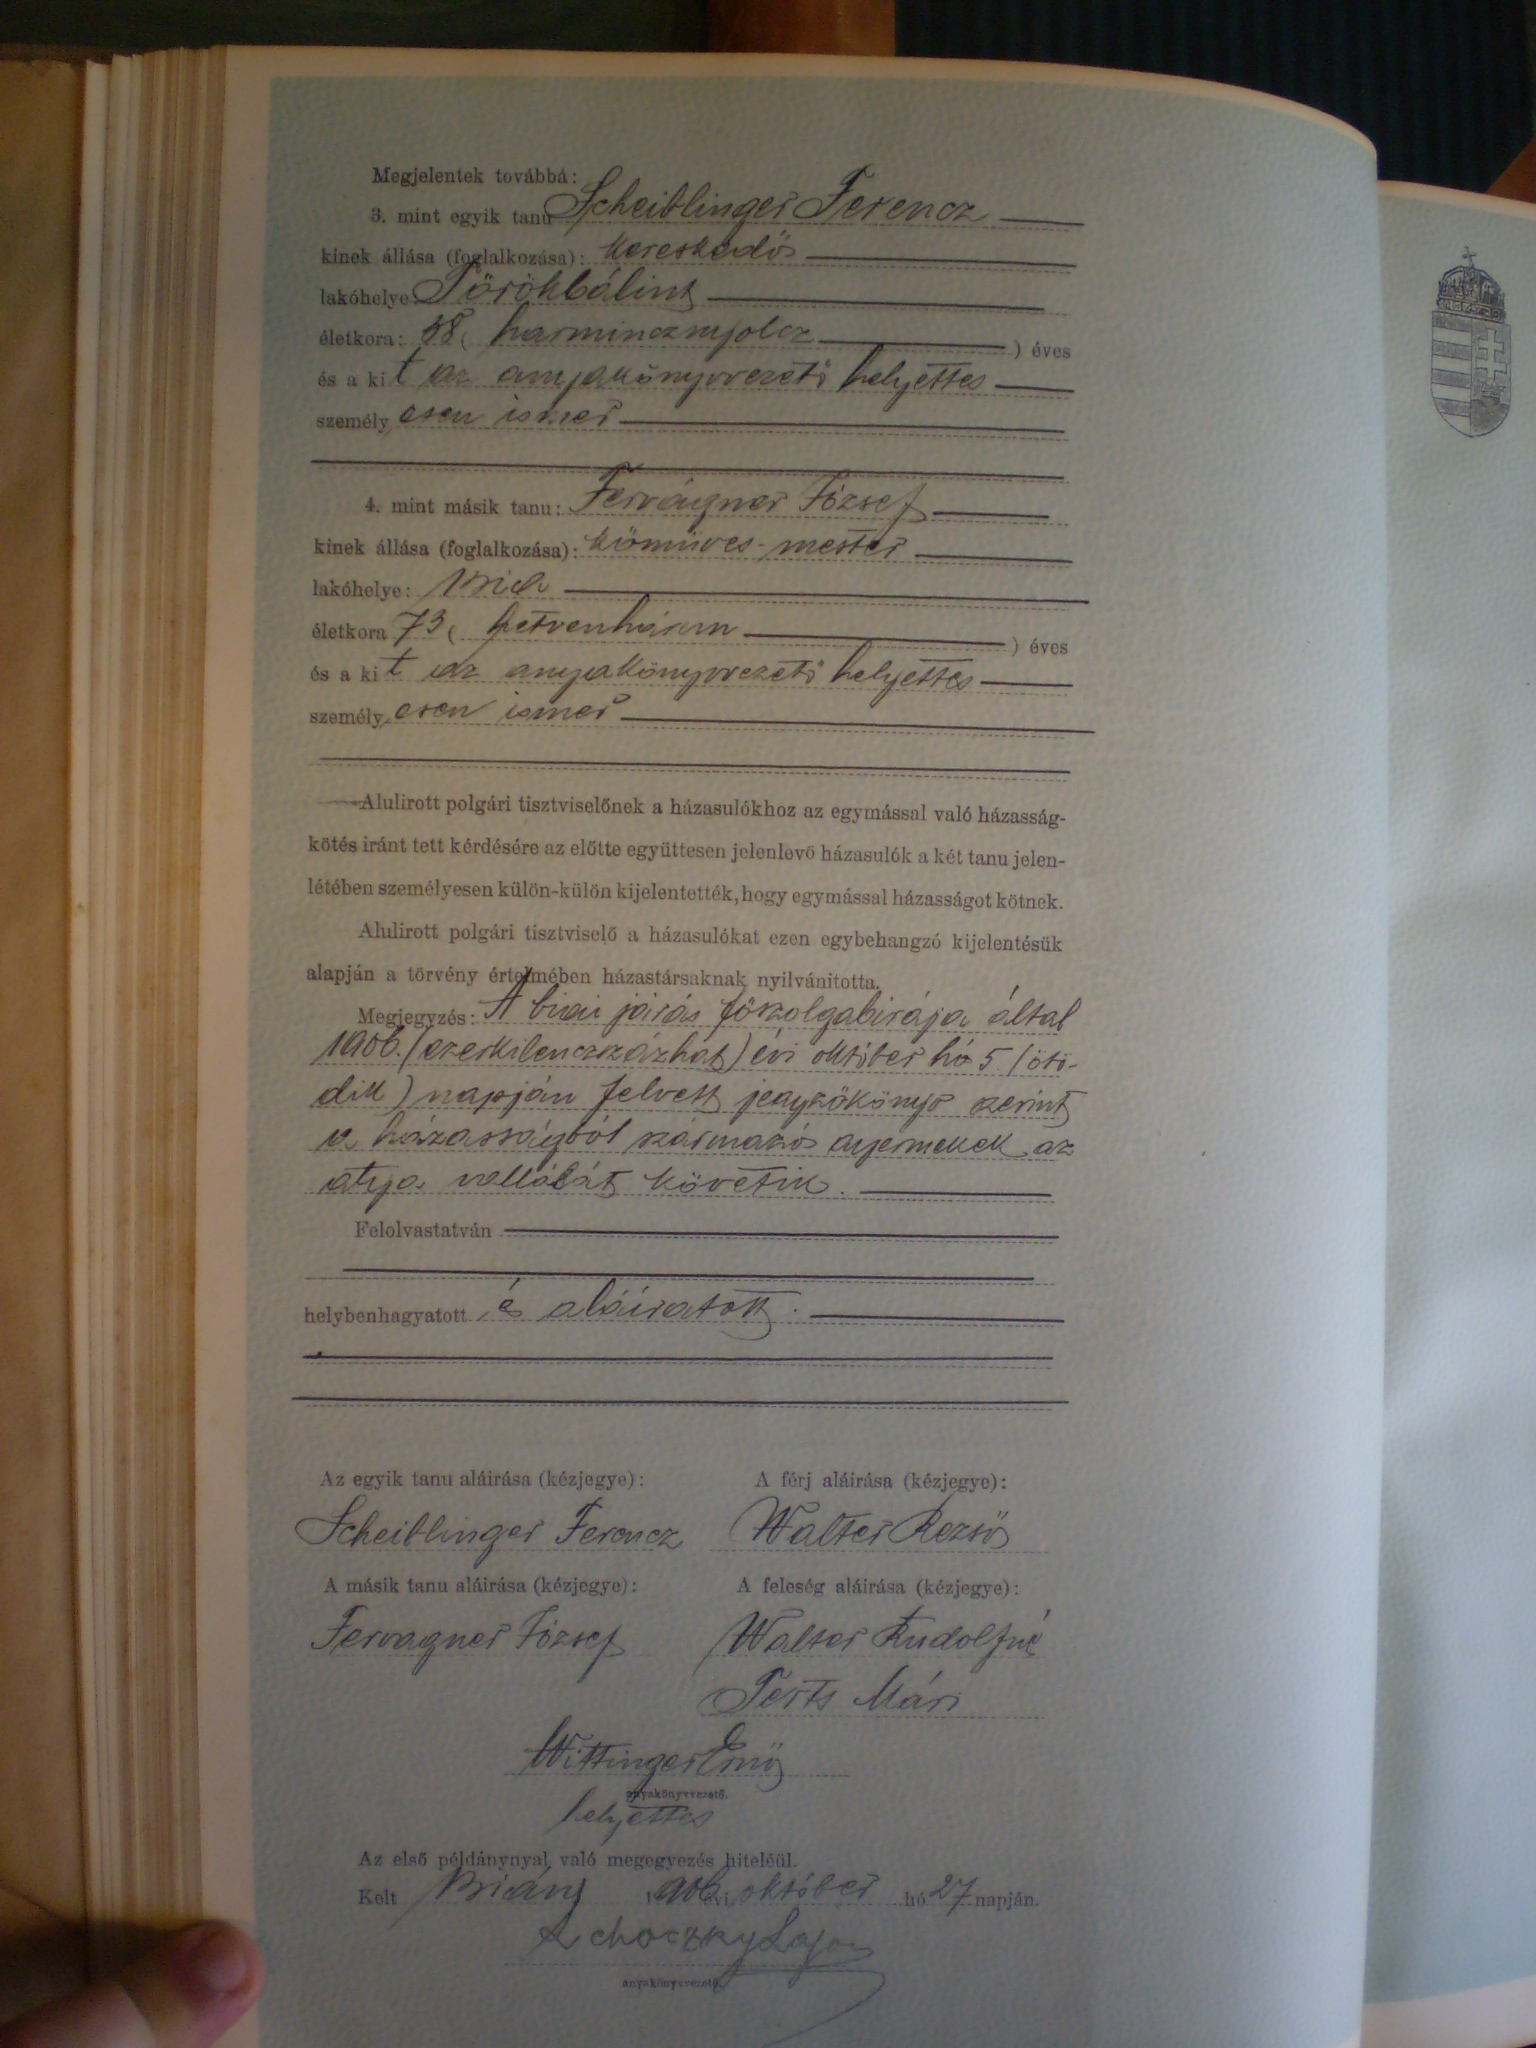 Megjelentek továbbá:
3. mint egyik tanu Scheiblinger Ferencz
kinek állása (foglalkozása): kereskedő
lakóhelye Törökbálint
életkora: 38 ( harmincznyolcz ) éves
és a kit az anyakönyvvezető helyettes
személyesen ismer
4. mint másik tanu: Fervágner József
kinek állása (foglalkozása): kőmüves-mester
lakóhelye: Bia
életkora 73 ( hetvenhárom ) éves
és a kit az anyakönyvvezető helyettes
személyesen ismer
Alulirott polgári tisztviselőnek a házasulókhoz az egymással való házasság-
kötés iránt tett kérdésére az előtte együttesen jelenlevő házasulók a két tanu jelen-
létében személyesen külön-külön kijelentették, hogy egymással házasságot kötnek.
Alulirott polgári tisztviselő a házasulókat ezen egybehangzó kijelentésük
alapján a törvény értelmében házastársaknak nyilvánitotta.
Megjegyzés: A biai járás főszolgabirája által
1906. (ezerkilenczszázhat) évi október hó 5 (ötö-
dik) napján felvett jegyzőkönyv szerint
a házasságból származó gyermekek az
atya vallását követik.
Felolvastatván
helybenhagyatott és aláiratott.
Az egyik tanu aláirása (kézjegye): A férj aláirása (kézjegye):
Scheiblinger Ferencz Walter Rezső
A másik tanu aláirása (kézjegye): A feleség aláirása (kézjegye):
Fervagner József Walter Rudolfné
Terts Mári
Wittinger Ernő
anyakönyvvezető.
helyettes
Az első példánynyal való megegyezés hiteléül.
Kelt Bián, 1906 évi október hó 27 napján.
Lajos
anyakönyvvezető.